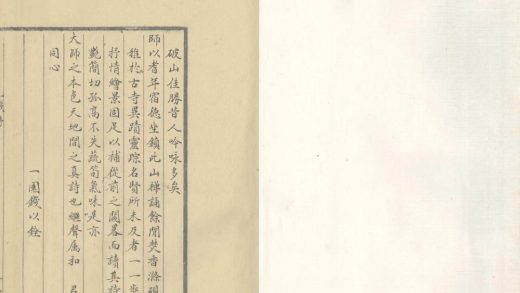 破山佳勝昔人吟咏多矣
師以耆年宿德坐鎮此山禅誦餘閒焚香滌硯
雅於古寺異蹟靈踪名賢所未及者一一
抒情繪景固足以補從前之闕畧而讀其詩
艷簡切孤高不失蔬筍氣味是亦
大師之本色天地間之真詩也繼聲属和
同心
一園錢以銓